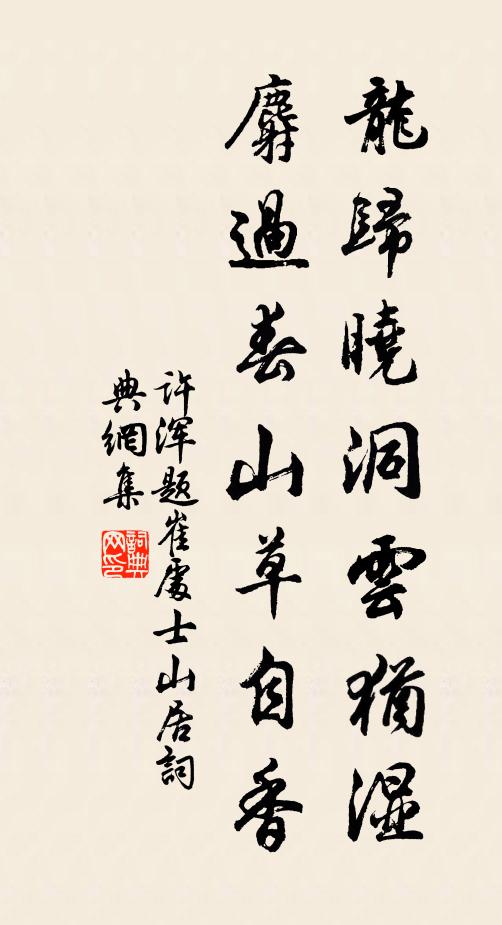 龍歸曉洞雲猶濕
麝過春山草自香
许渾题崔處士山居詞
典網集
詞典
网印